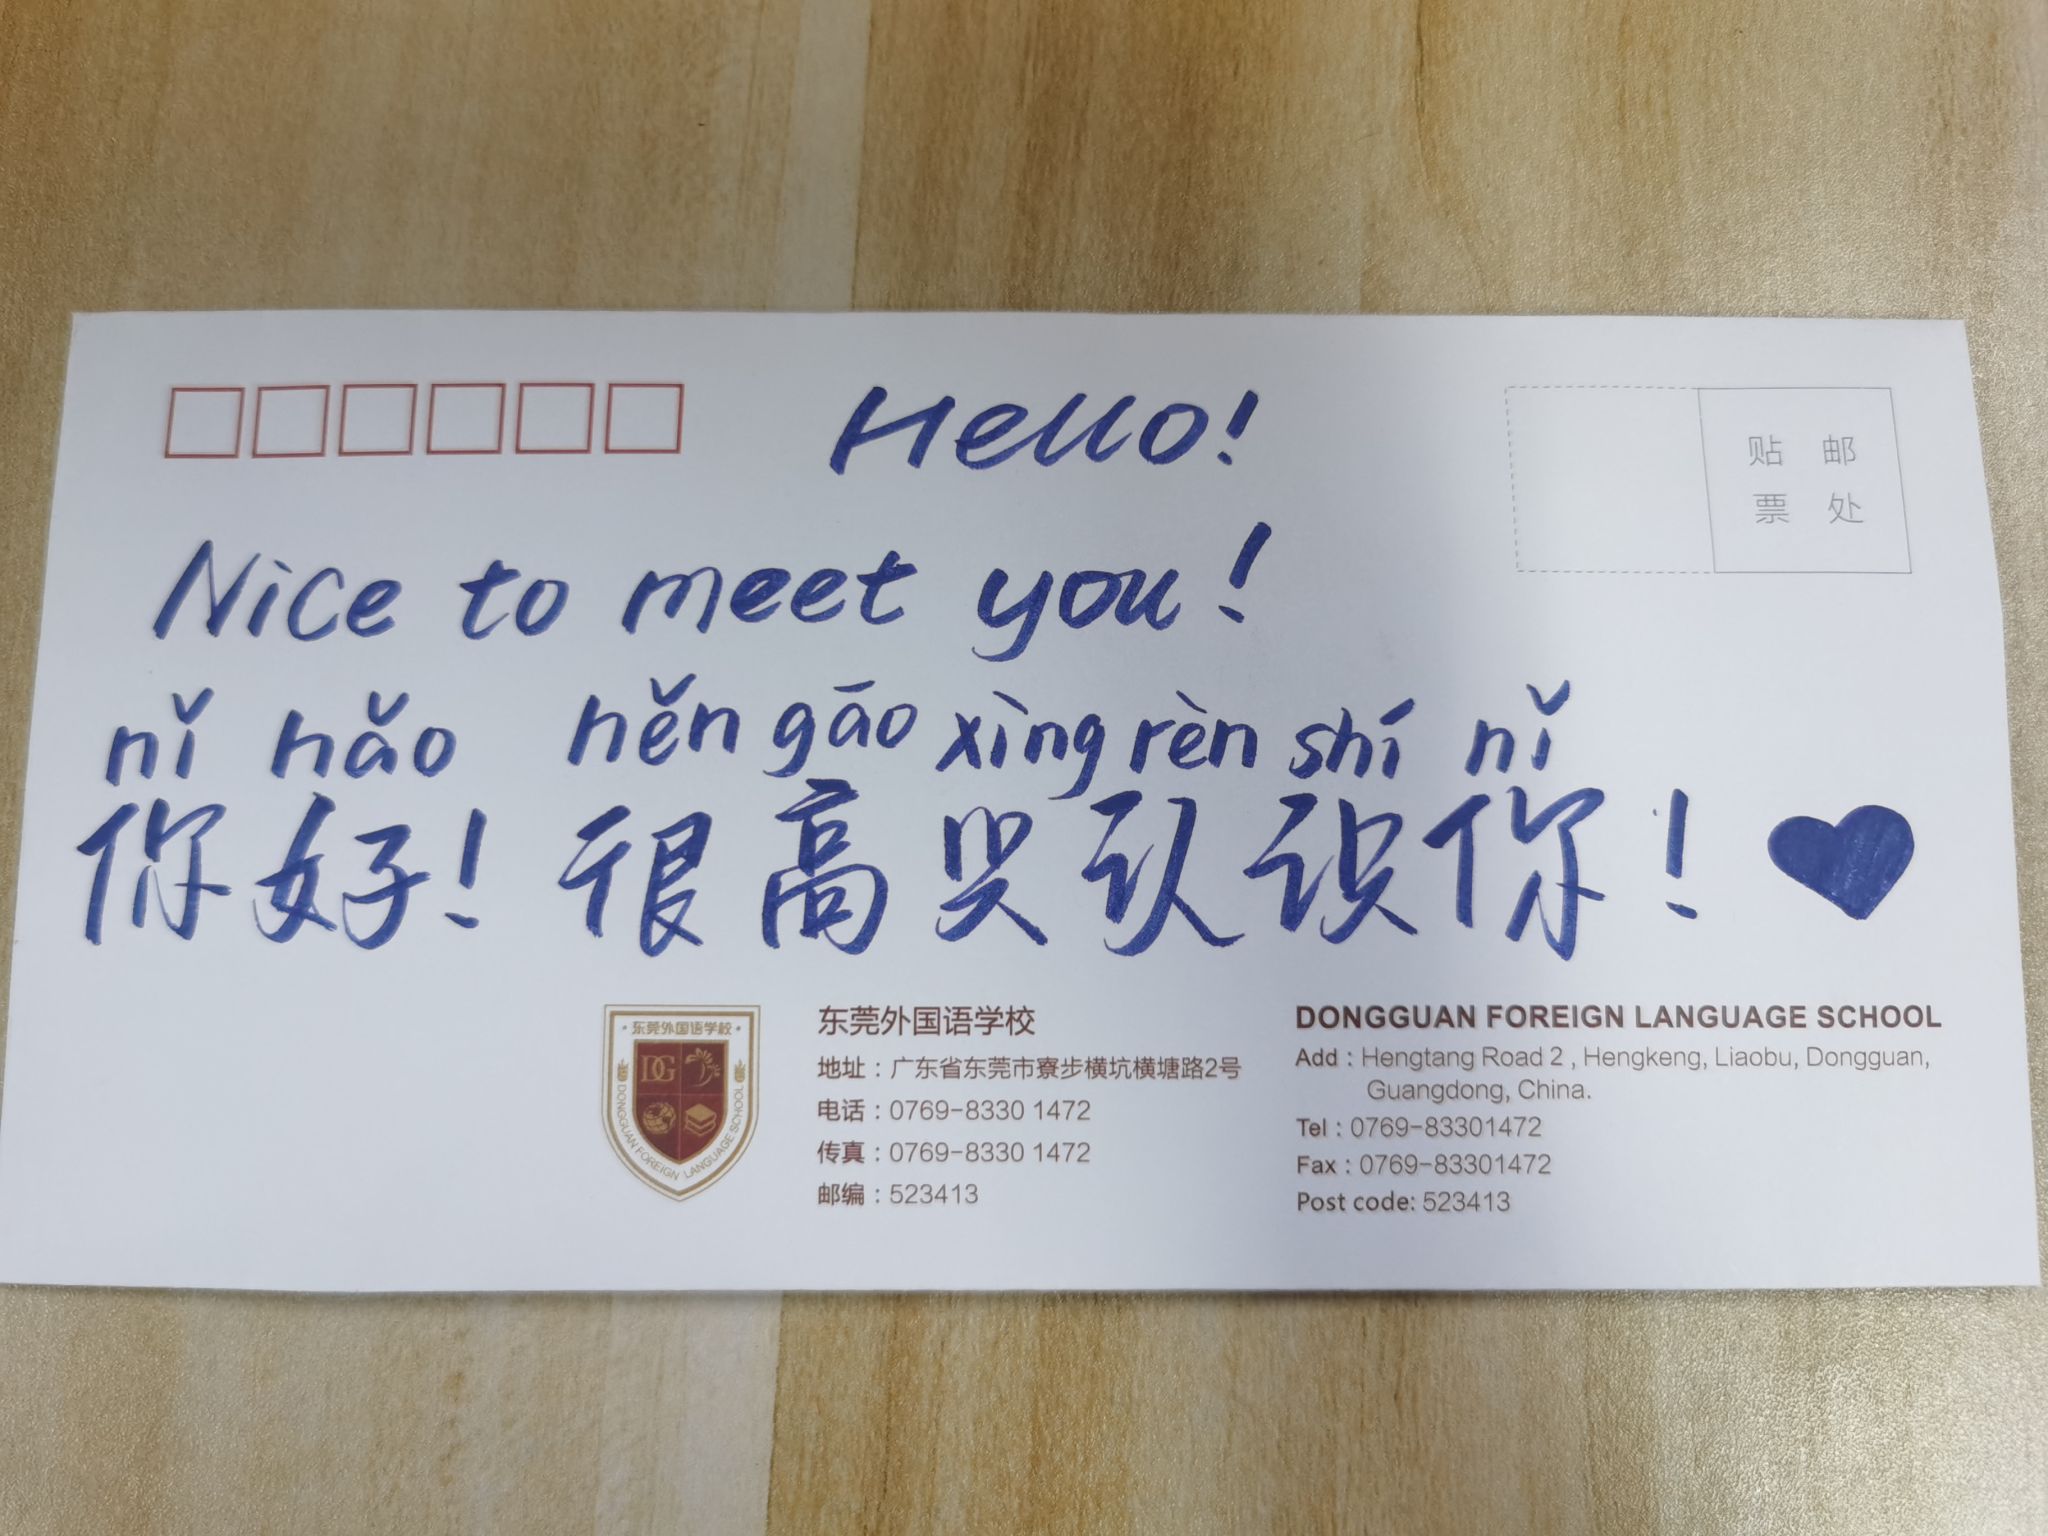 Hello!
贴 邮
票 处
Nice to meet you!
nǐ hǎo hěn gāo xìng rèn shí nǐ
你好! 很高兴认识你!
·东莞外国语学校·
DG
DONGGUAN FOREIGN LANGUAGE SCHOOL
东莞外国语学校
地址：广东省东莞市寮步横坑横塘路2号
电话：0769-8330 1472
传真：0769-8330 1472
邮编：523413
DONGGUAN FOREIGN LANGUAGE SCHOOL
Add：Hengtang Road 2 , Hengkeng, Liaobu, Dongguan,
Guangdong, China.
Tel：0769-83301472
Fax：0769-83301472
Post code: 523413